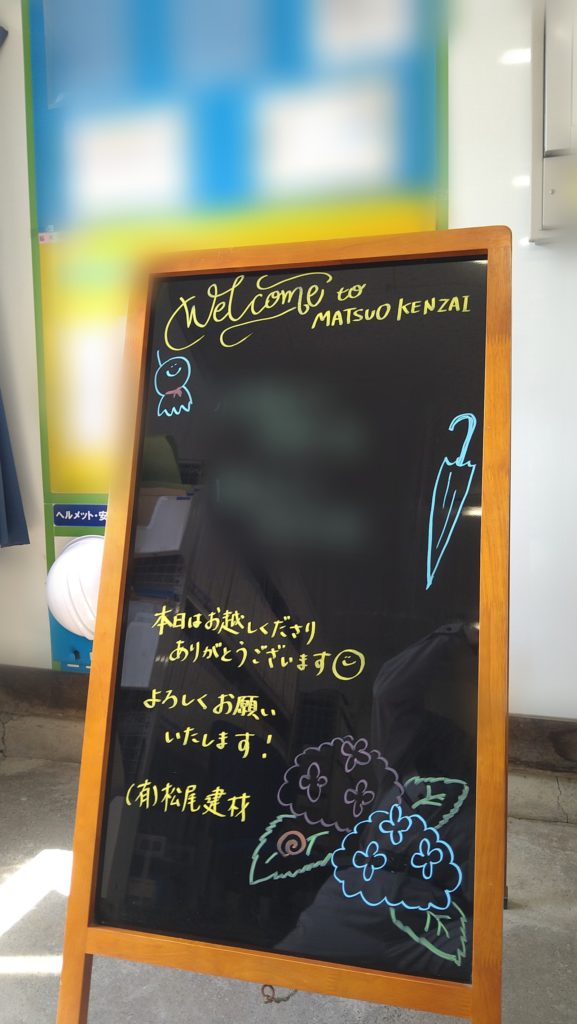 Welcome to
MATSUO KENZAI
ヘルメット・安
本日はお越しくださり
ありがとうございます
よろしくお願い
いたします!
(有)松尾建材